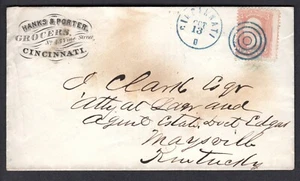 HANKS & PORTER,
GROCERS,
Street,
CINCINNATI.
CINCINNATI
13
J. Clark Esqr
atty at Law and
Agent Estate
Maysville
Kentucky